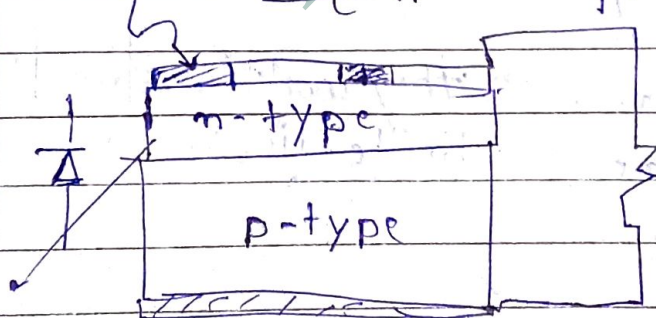 n-type
p-type